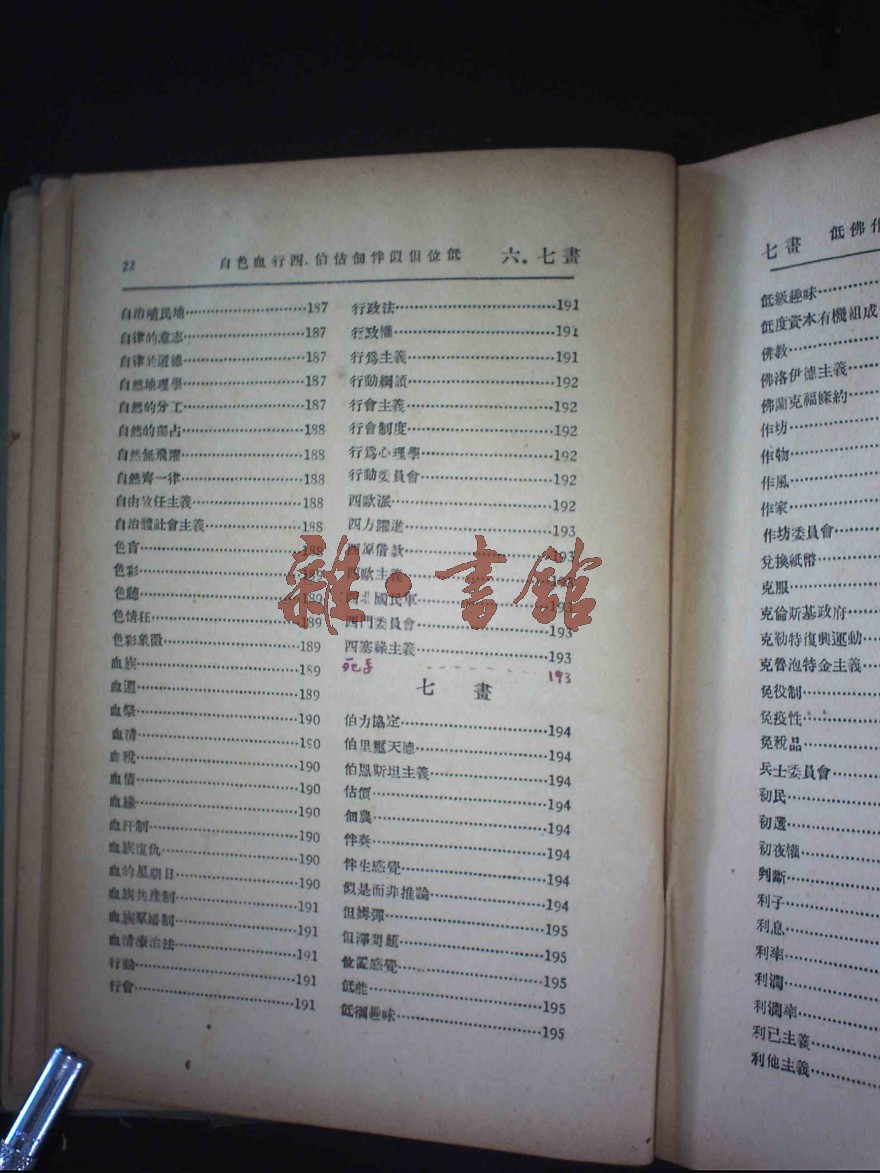 22 自色血行西．伯估佃伴似但位低 六．七畫
自治殖民地……187
自律的意志……187
自律的道德……187
自然地理學……187
自然的分工……187
自然的獨占……188
自然無飛躍……188
自然齊一律……188
自由放任主義……188
自治體社會主義……188
色盲……188
色彩……189
色聽……189
色情狂……189
色彩象徵……189
血族……189
血週……189
血祭……190
血清……190
血稅……190
血債……190
血緣……190
血汗制……190
血族復仇……190
血的星期日……190
血族共產制……191
血族羣婚制……191
血清療治法……191
行動……191
行會……191
行政法……191
行政權……191
行爲主義……191
行動綱領……192
行會主義……192
行會制度……192
行爲心理學……192
行動委員會……192
西歐派……192
西方躍進……193
西原借款……193
西歐主義……193
西北國民軍……193
西門委員會……193
西塞祿主義……193
死手……193
七 畫
伯力協定……194
伯里璽天德……194
伯恩斯坦主義……194
估價……194
佃農……194
伴奏……194
伴生感覺……194
似是而非推論……194
但姆彈……195
但澤問題……195
位置感覺……195
低能……195
低徊趣味……195
雜·書館
七畫 低佛作
低級趣味……
低度資本有機組成
佛教……
佛洛伊德主義……
佛蘭克福條約……
作坊……
作物……
作風……
作家……
作坊委員會……
兌換紙幣……
克服……
克倫斯基政府……
克勒特復興運動……
克魯泡特金主義……
免役制……
免疫性……
免稅品……
兵士委員會……
初民……
初選……
初夜權……
判斷……
利子……
利息……
利率……
利潤……
利潤率……
利己主義……
利他主義……